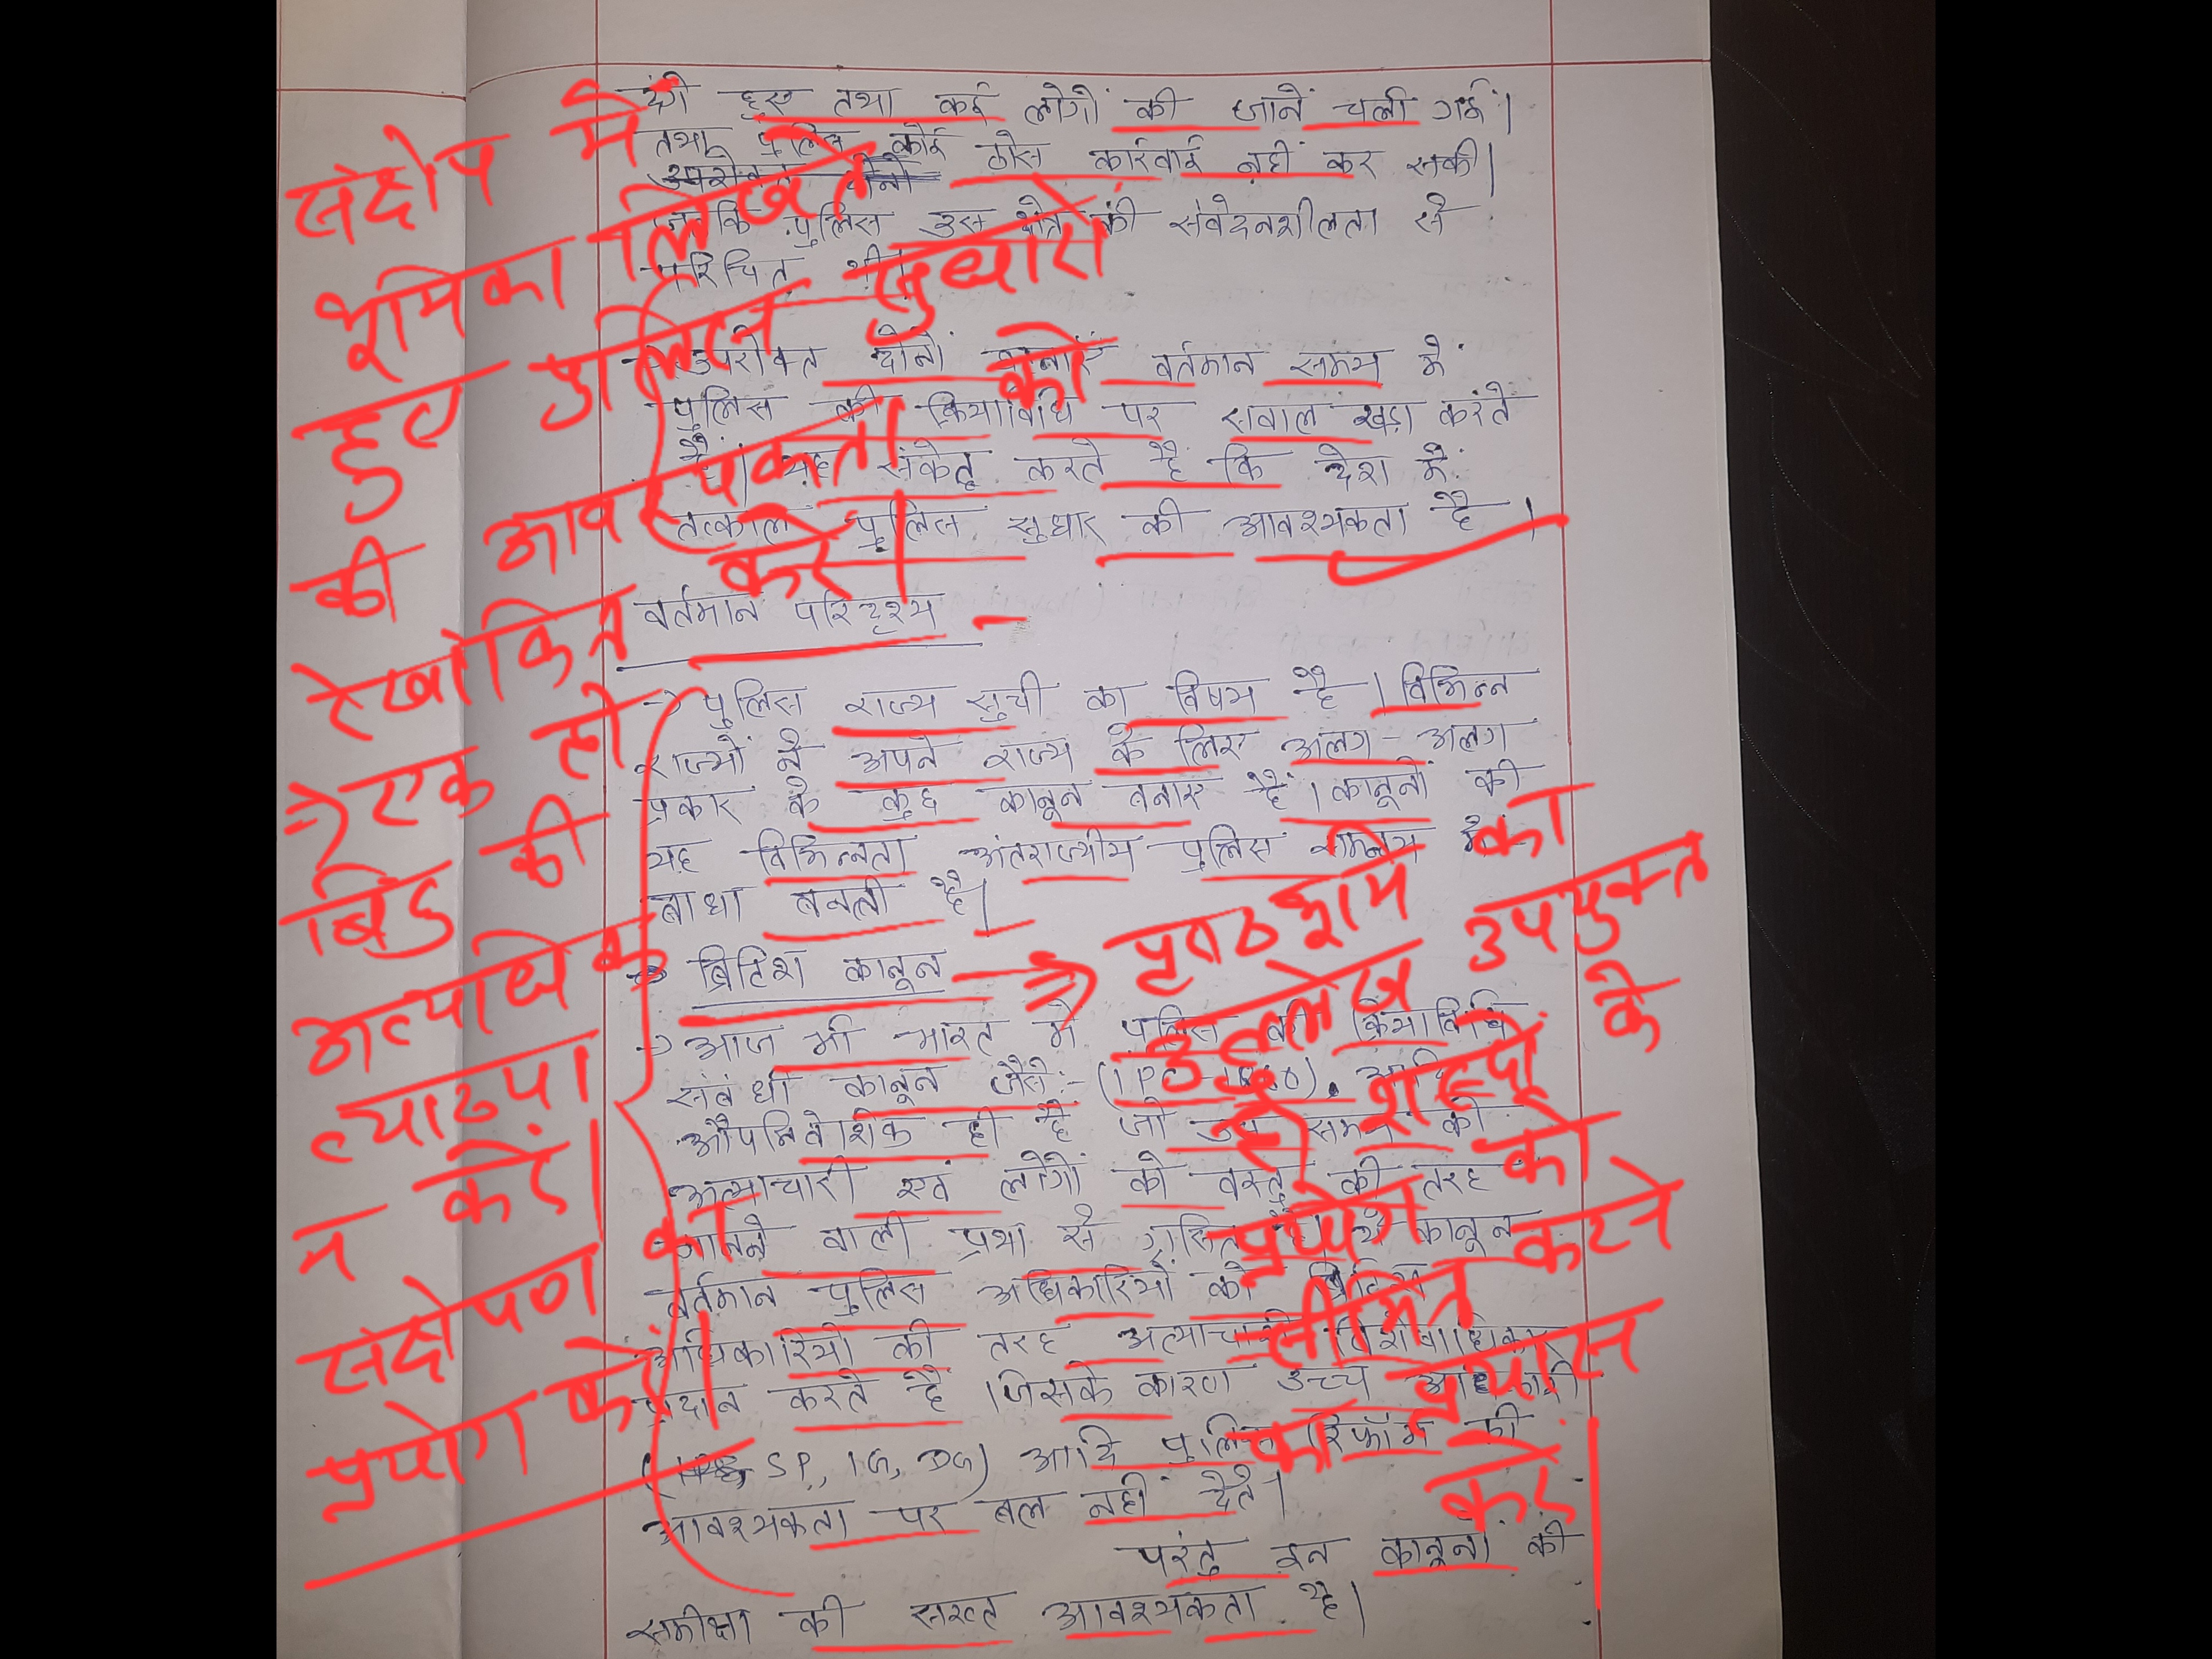 दंगे हुए तथा कई लोगों की जानें चली गई।
तथा पुलिस कोई ठोस कार्रवाई नहीं कर सकी।
जबकि पुलिस उस क्षेत्र की संवेदनशीलता से
परिचित थी।
उपरोक्त दोनों घटनाएं वर्तमान समय में
पुलिस की क्रियाविधि पर सवाल खड़ा करते
हैं। यह संकेत करते है कि देश में
तत्काल पुलिस सुधार की आवश्यकता है।
वर्तमान परिदृश्य
→ पुलिस राज्य सुची का विषय है। विभिन्न
राज्यों ने अपने राज्य के लिए अलग-अलग
प्रकार के कुछ कानून बनाए हैं। कानूनों की
यह विभिन्नता अंतराज्यीय पुलिस समन्वय में
बाधा बनती है।
→ ब्रिटिश कानून
→ आज भी भारत में पुलिस की क्रियाविधि
संबंधी कानून जैसे:- (IPC-1860), आदि
औपनिवेशिक ही है जो उस समय की
अत्याचारी एवं लोगों को वस्तु की तरह
मानने वाली प्रथा से ग्रसित है। ये कानून
वर्तमान पुलिस अधिकारियों को ब्रिटिश
अधिकारियों की तरह अत्याचारी विशेषाधिकार
प्रदान करते है जिसके कारण उच्च अधिकारी
SP, IG, DG) आदि पुलिस रिफॉर्म की
आवश्यकता पर बल नहीं देते।
परंतु इन कानूनों की
समीक्षा की सख्त आवश्यकता है।
संक्षेप में
भूमिका लिखते
हुए पुलिस सुधारों
की आवश्यकता को
रेखांकित करें।
→ एक ही
बिंदु की
अत्याधिक
व्याख्या
न करें।
संक्षेपण का
प्रयोग करें।
→ पृष्ठभूमि का
उल्लेख उपयुक्त
है। शब्दों के
प्रयोग को
सीमित करने
का प्रयास
करें।